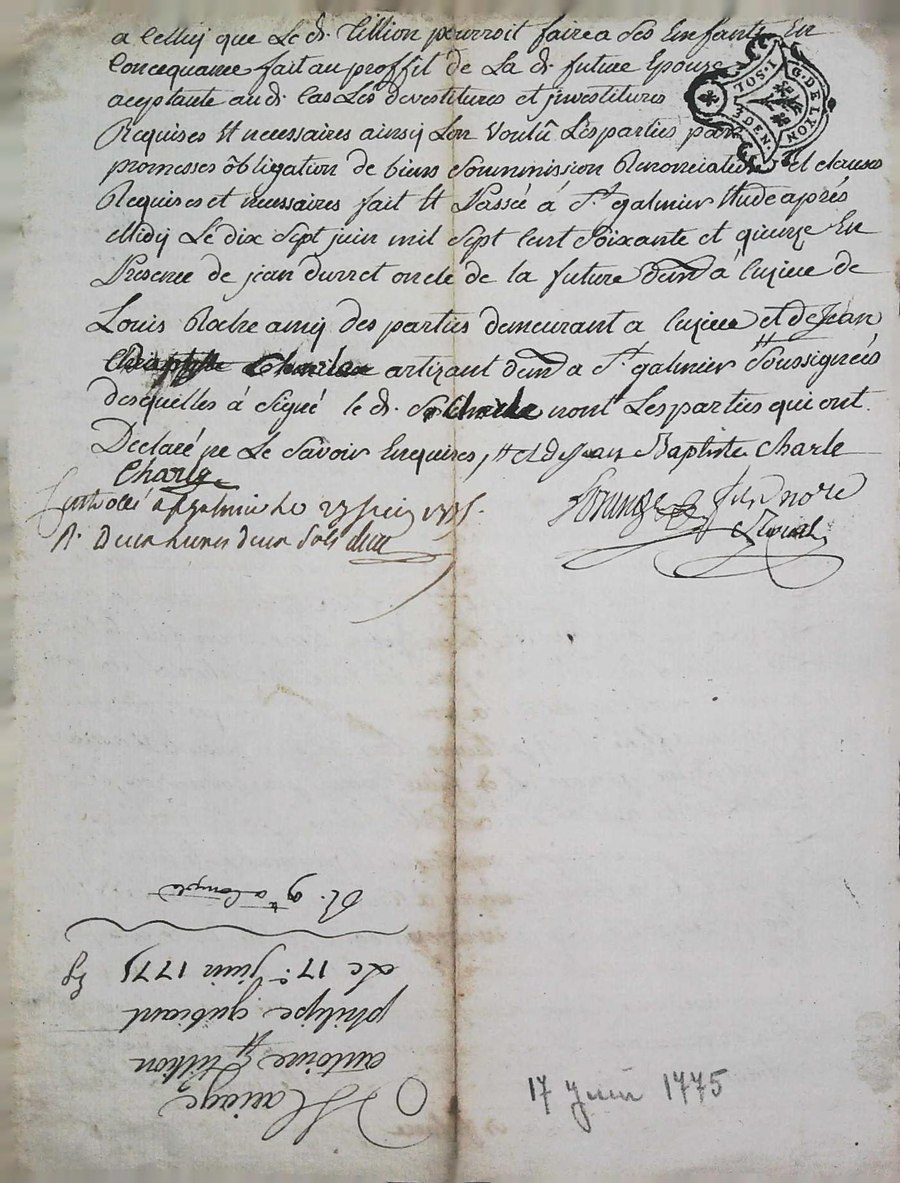 a Celluy que Le d. Tillion pourroit faire a Ses Enfants En
Concequance fait au proffit de La d. future Epouze
aceptante au d. Cas Les devestitures et jnvestitures
Requises Et necessaires ainsy Lon Voulû Les parties par
promesses obligation de biens Soummission Renonciations et clauses
Requises et necessaires fait Et Passée à St. galmier Etude aprés
Midy Le dix Sept juin mil Sept Cent Soixante et quinze En
Presence de jean durret oncle de la future dem. à Cuzieu de
Louis Roche amy des parties demeurant a Cuzieu et de Jean
artizant dem. a St. galmier Soussignées
desquelles à Signé le d. Charle nont Les parties qui ont
Declaré ne Le Savoir Enquires, Et de Jean Baptiste Charle
Charle
fils nore
Controllé a St galmier Le 27 juin 1775.
R. Deux Livres deux Sols
1.SOL.
3DEN.
G.DE LYON
R. gr. a Compte
Le 17e juin 1775
philipe gubiant
antoine Et tillion
Mariage
17 Juin 1775